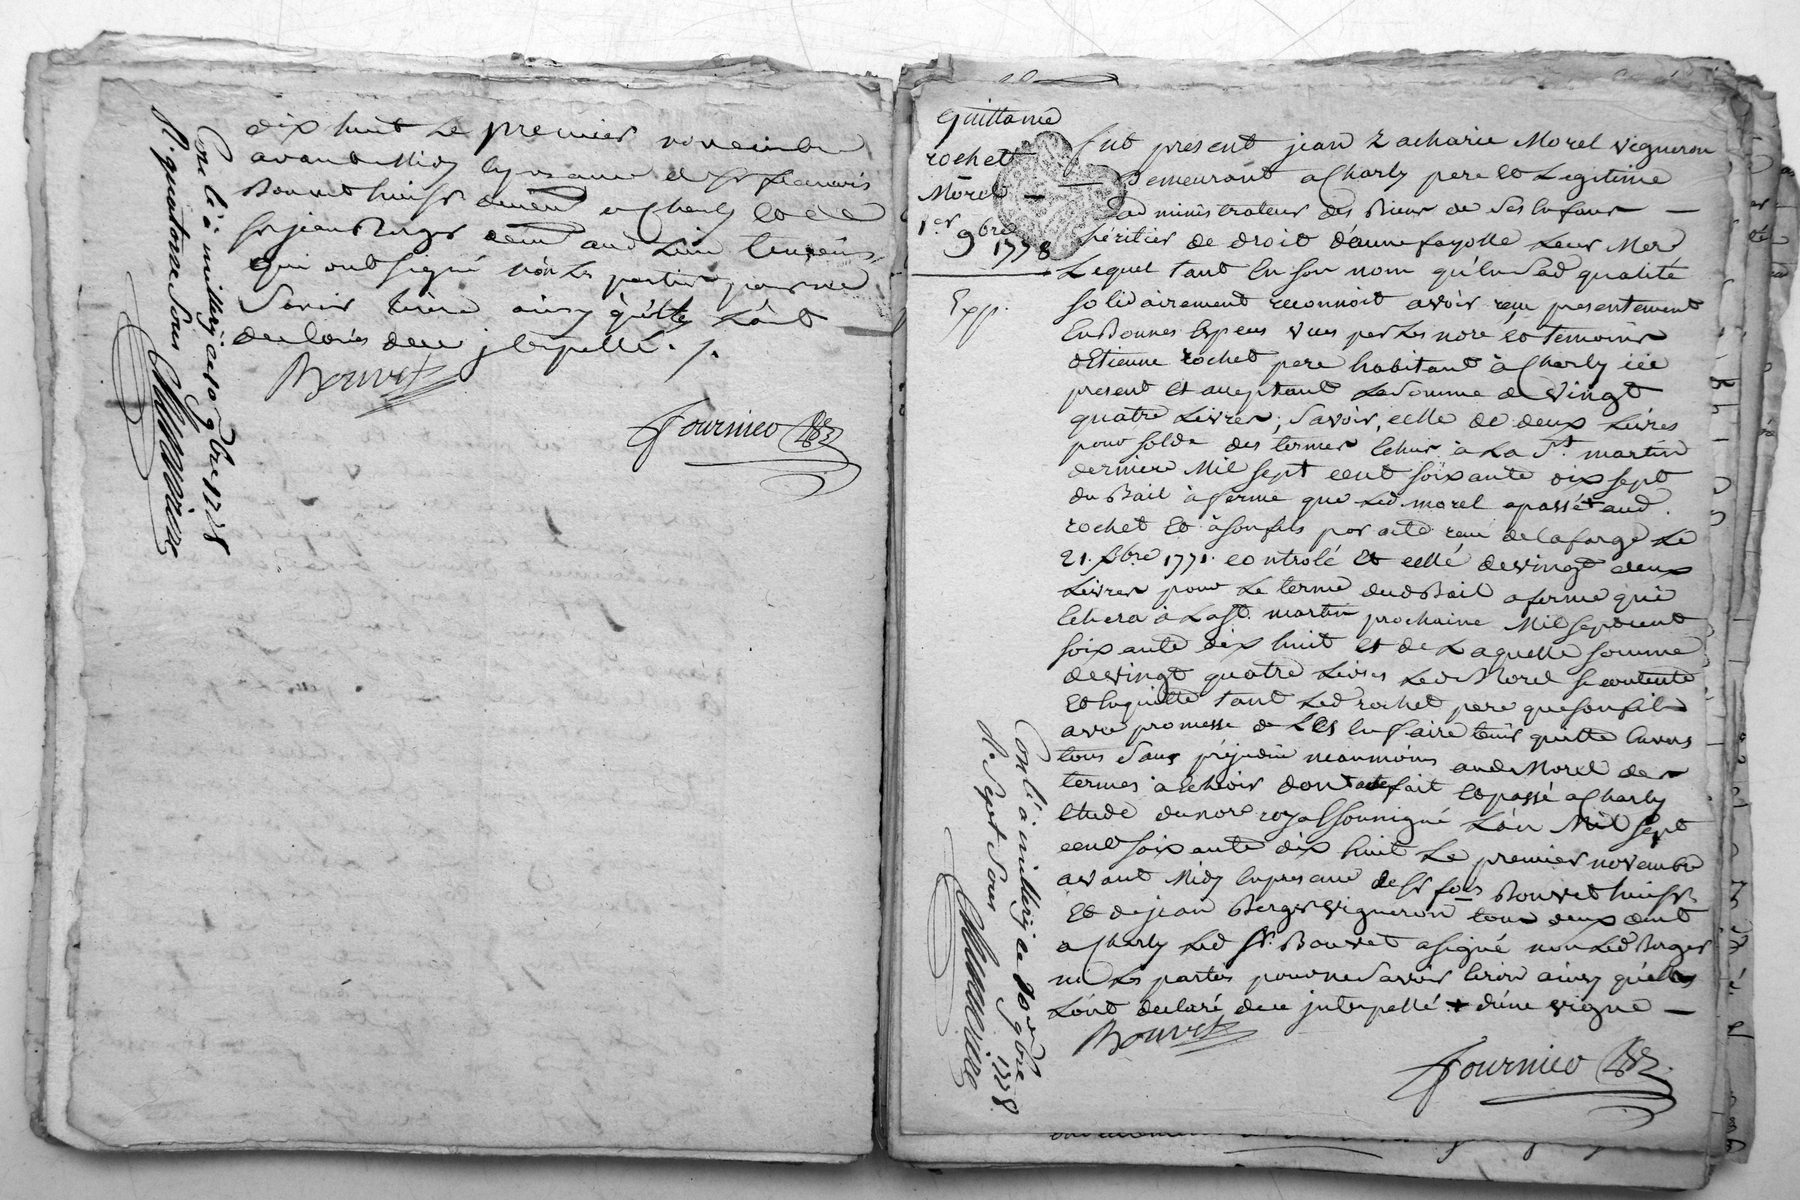 dix huit Le premier novembre
avant Midy En presence de Sr francois
Bouvet huissr demt a Charly et de
Sr jean Berger demt aud Lieu temoins
qui ont signé non Les parties pour ne
Savoir Ecrire ainsy qu'elles L'ont
declarés de ce jnterpellé ./.
Bouvet
Fournier
Conlé à millery ce 10 9bre 1778
R. quatorze Sous
quittance
rochet
Morel
1er 9bre
1778
Exp.
fut present jean Zacharie Morel vigneron
Demeurant a Charly pere et Legitime
administrateur des Biens de Ses Enfans
héritier de droit d'anne fayolle Leur Mere
Lequel tant En son nom qu'En Sad qualité
solidairement reconnoit avoir reçu presentement
En Bonnes Especes vues par Les nore et temoins
d'Etienne rochet pere habitant à Charly icÿ
present et acceptant La Somme de vingt
quatre Livres, Savoir, celle de deux Livres
pour solde des termes Echus à La St. martin
derniere Mil sept cent soixante dix sept
du Bail à ferme que Led. morel a passé + aud.
rochet et à son fils par acte reçu delaforge Le
21. Xbre 1771. controlé et celle de vingt deux
Livres pour Le terme dud Bail a ferme qui
Echera à La St. martin prochaine Mil sept cent
soixante dix huit et de Laquelle somme
de vingt quatre Livres Led Morel se contente
Et En quitte tant Led rochet pere que son fils
avec promesse de Les En faire tenir quitte Envers
tous sans préjudice neanmoins aud. Morel des
termes à echeoir dont acte fait et passé a Charly
Etude du nore royal soussigné L'an Mil sept
cent soixante dix huit Le premier novembre
avant Midy En presence de Sr fois Bouvet huissr
Et de jean Berger vigneron tous deux demt
a Charly Led Sr. Bouvet a signé non Led Berger
ni Les parties pour ne Savoir Ecrire ainsy qu'elles
L'ont declaré de ce jnterpellé + d'une vigne
Bouvet
Fournier
Conlé à millery ce 10 9bre 1778.
R. Sept Sous